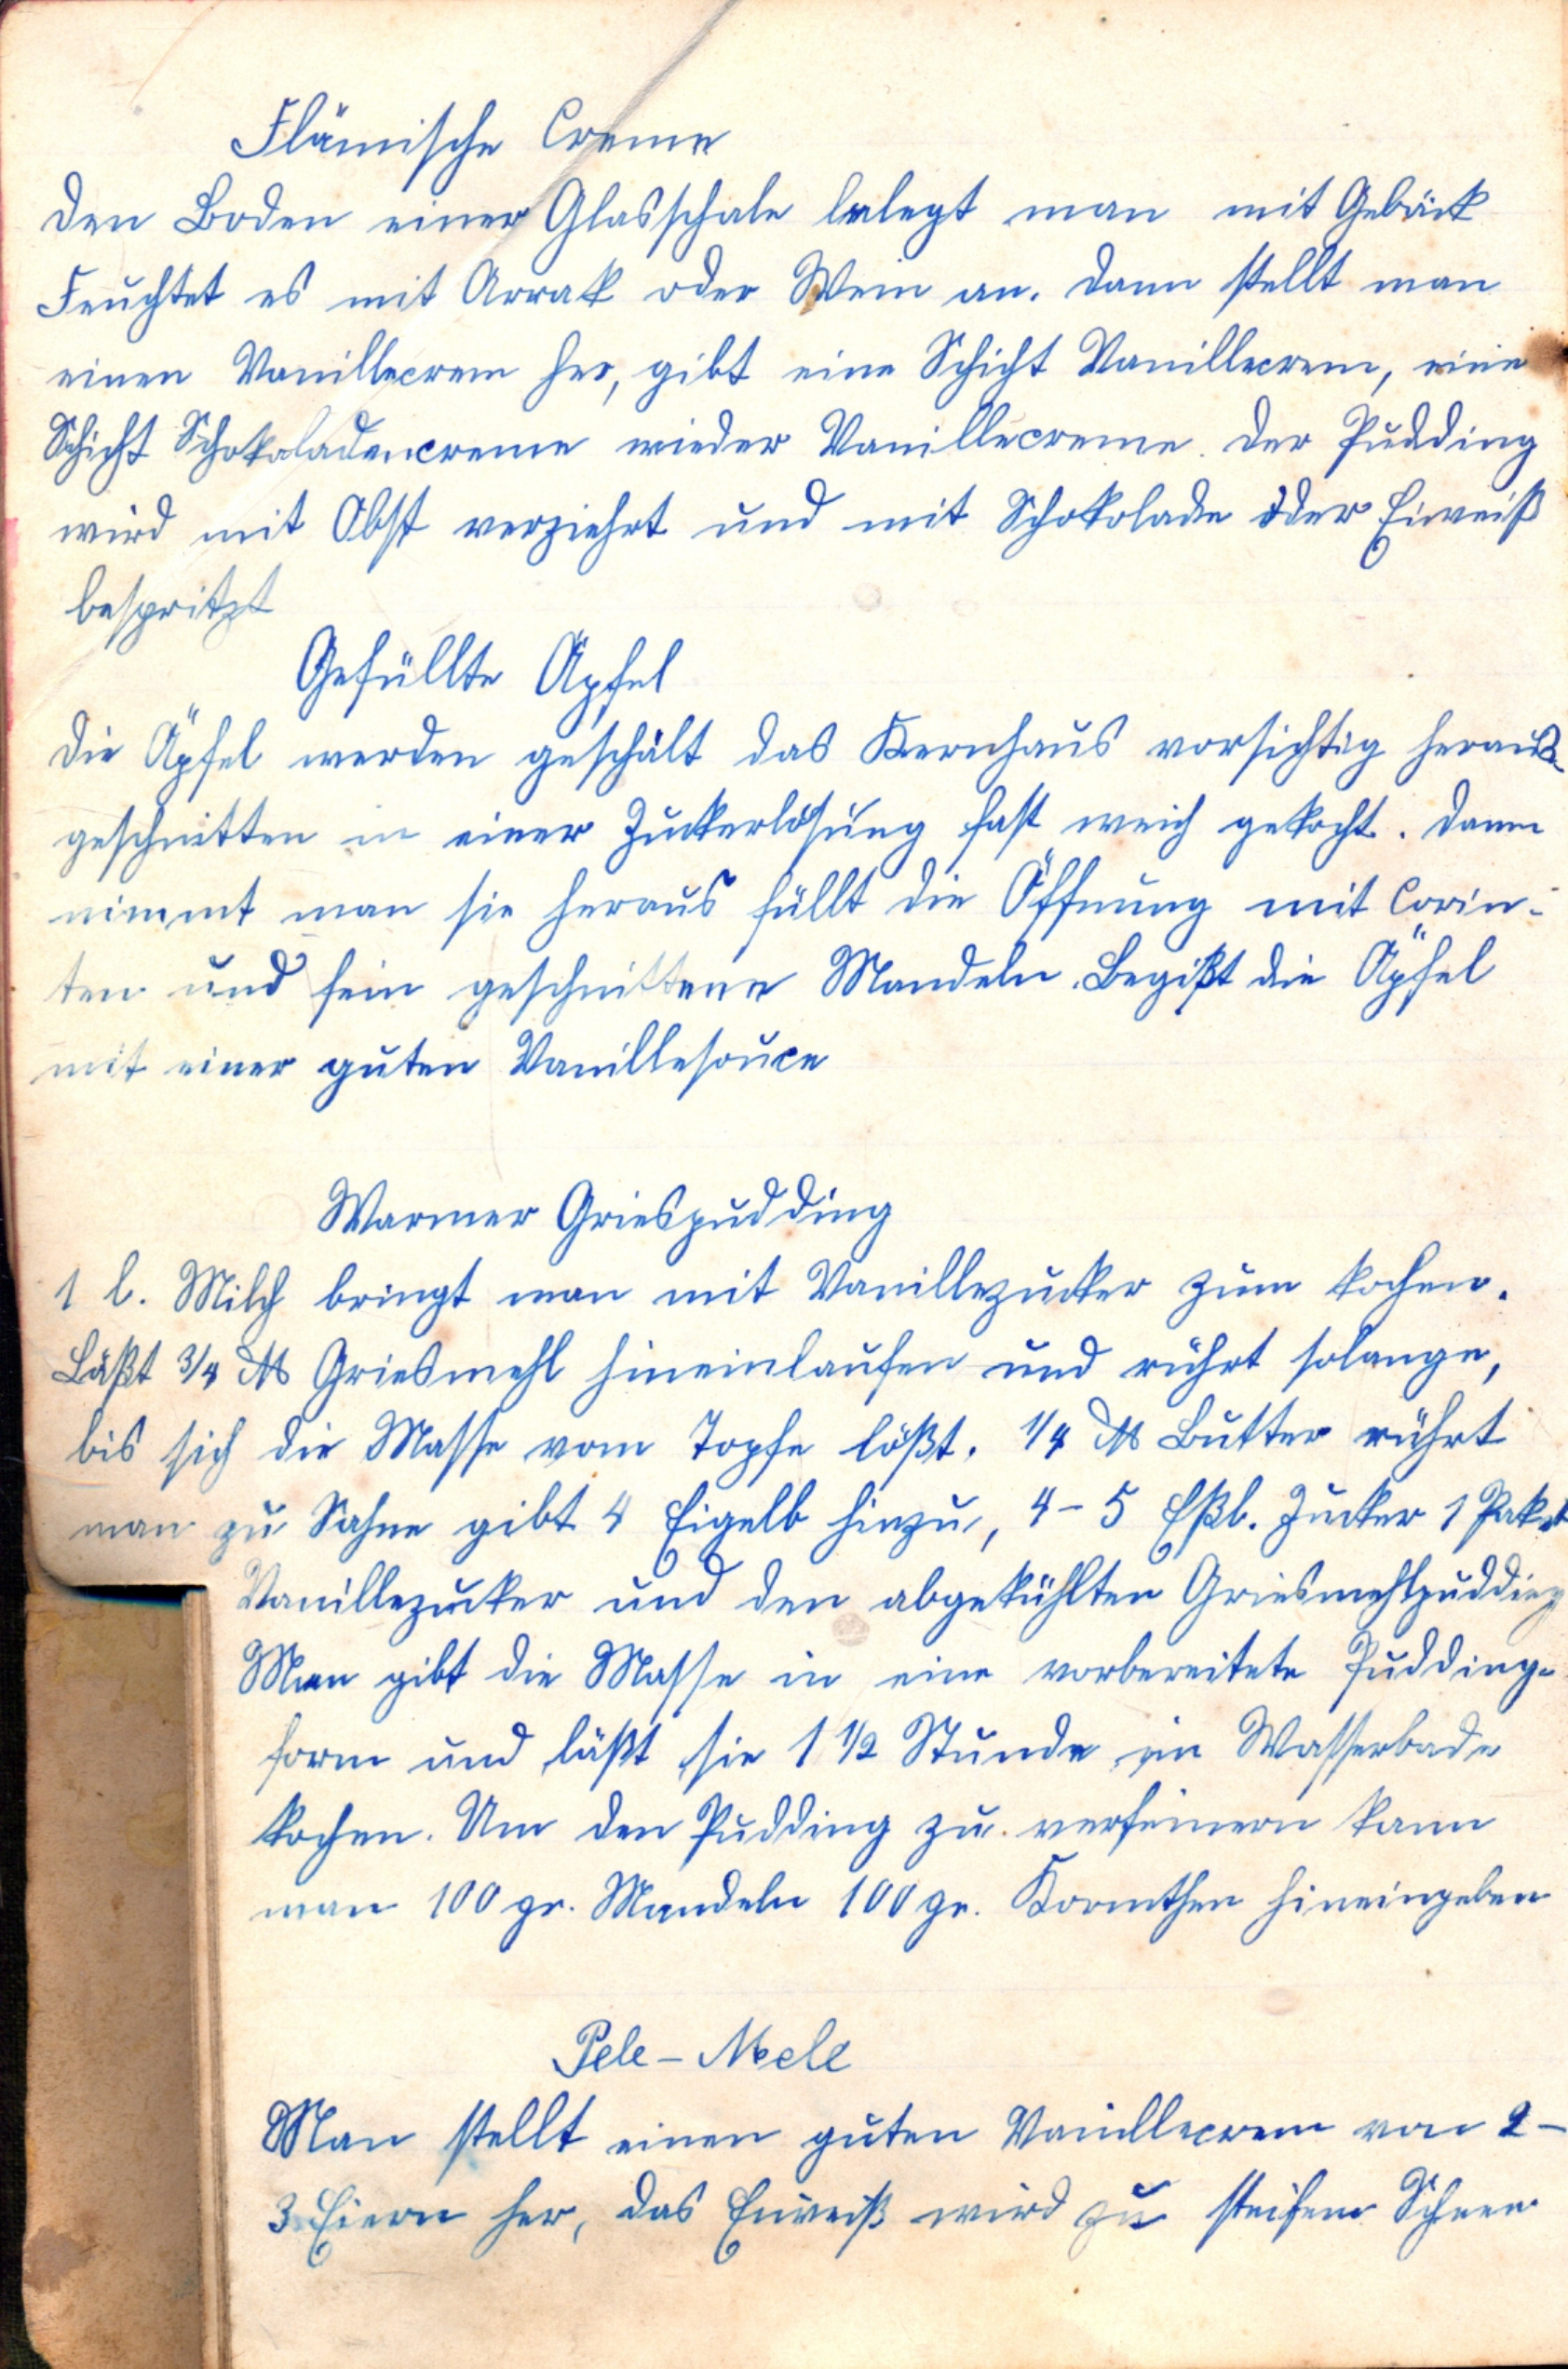 Flämische Creme
Den Boden einer Glasschale belegt man mit Gebäck
Feuchtet es mit Arrak oder Wein an. Dann stellt man
einen Vanillecrem her, gibt eine Schicht Vanillecrem, eine
Schicht Schokaladencreme wieder Vanillecreme. Der Pudding
wird mit Obst verziehrt und mit Schokolade oder Eiweiß
bespritzt
Gefüllte Äpfel
Die Äpfel werden geschält das Kernhaus vorsichtig heraus-
geschnitten in einer Zuckerlösung fast weich gekocht. Dann
nimmt man sie heraus füllt die Öffnung mit Corin-
ten und fein geschnittene Mandeln. Begißt die Äpfel
mit einer guten Vanillesouce
Warmer Griespudding
1 l. Milch bringt man mit Vanillezucker zum kochen.
Läßt 3/4 ℔ Griesmehl hineinlaufen und rührt solange,
bis sich die Masse vom Topfe lößt. 1/4 ℔ Butter rührt
man zu Sahne gibt 4 Eigelb hinzu, 4-5 Eßl. Zucker 1 Paket
Vanillezucker und den abgekühlten Griesmehlpudding
Man gibt die Masse in eine vorbereitete Pudding-
form und läßt sie 1 1/2 Stunde im Wasserbade
kochen. Um den Pudding zu verfeinern kann
man 100 gr. Mandeln 100 gr. Korinthen hineingeben
Pele-Mele
Man stellt einen guten Vanillecrem von 2-
3 Eiern her, das Eiweiß wird zu steifem Schnee